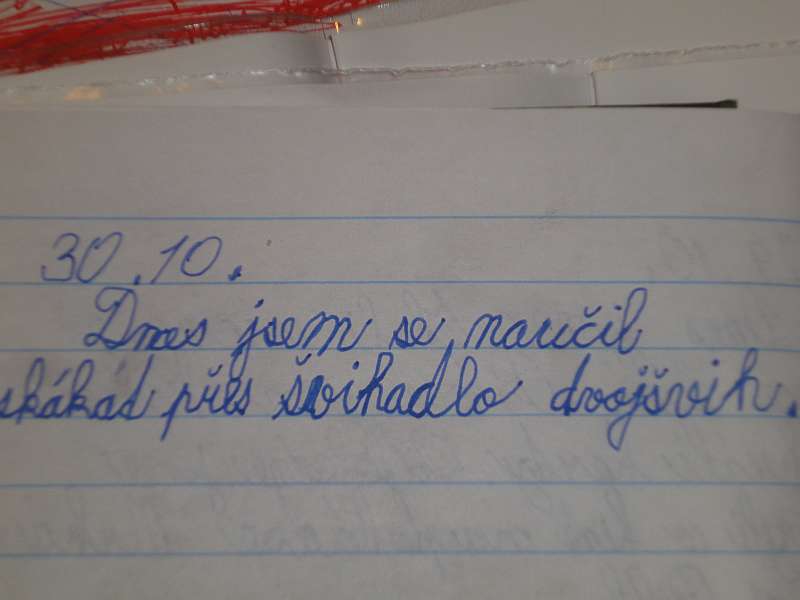 30.10.
Dnes jsem se naučil
skákad přes švihadlo dvojšvih.